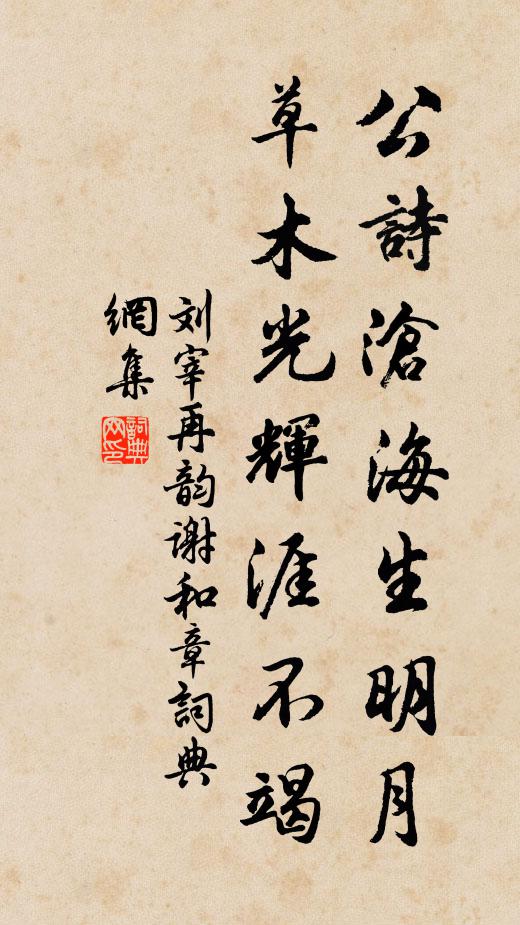 公詩滄海生明月
草木光輝涯不竭
刘宰再韵谢和章詞典
網集
詞典网印